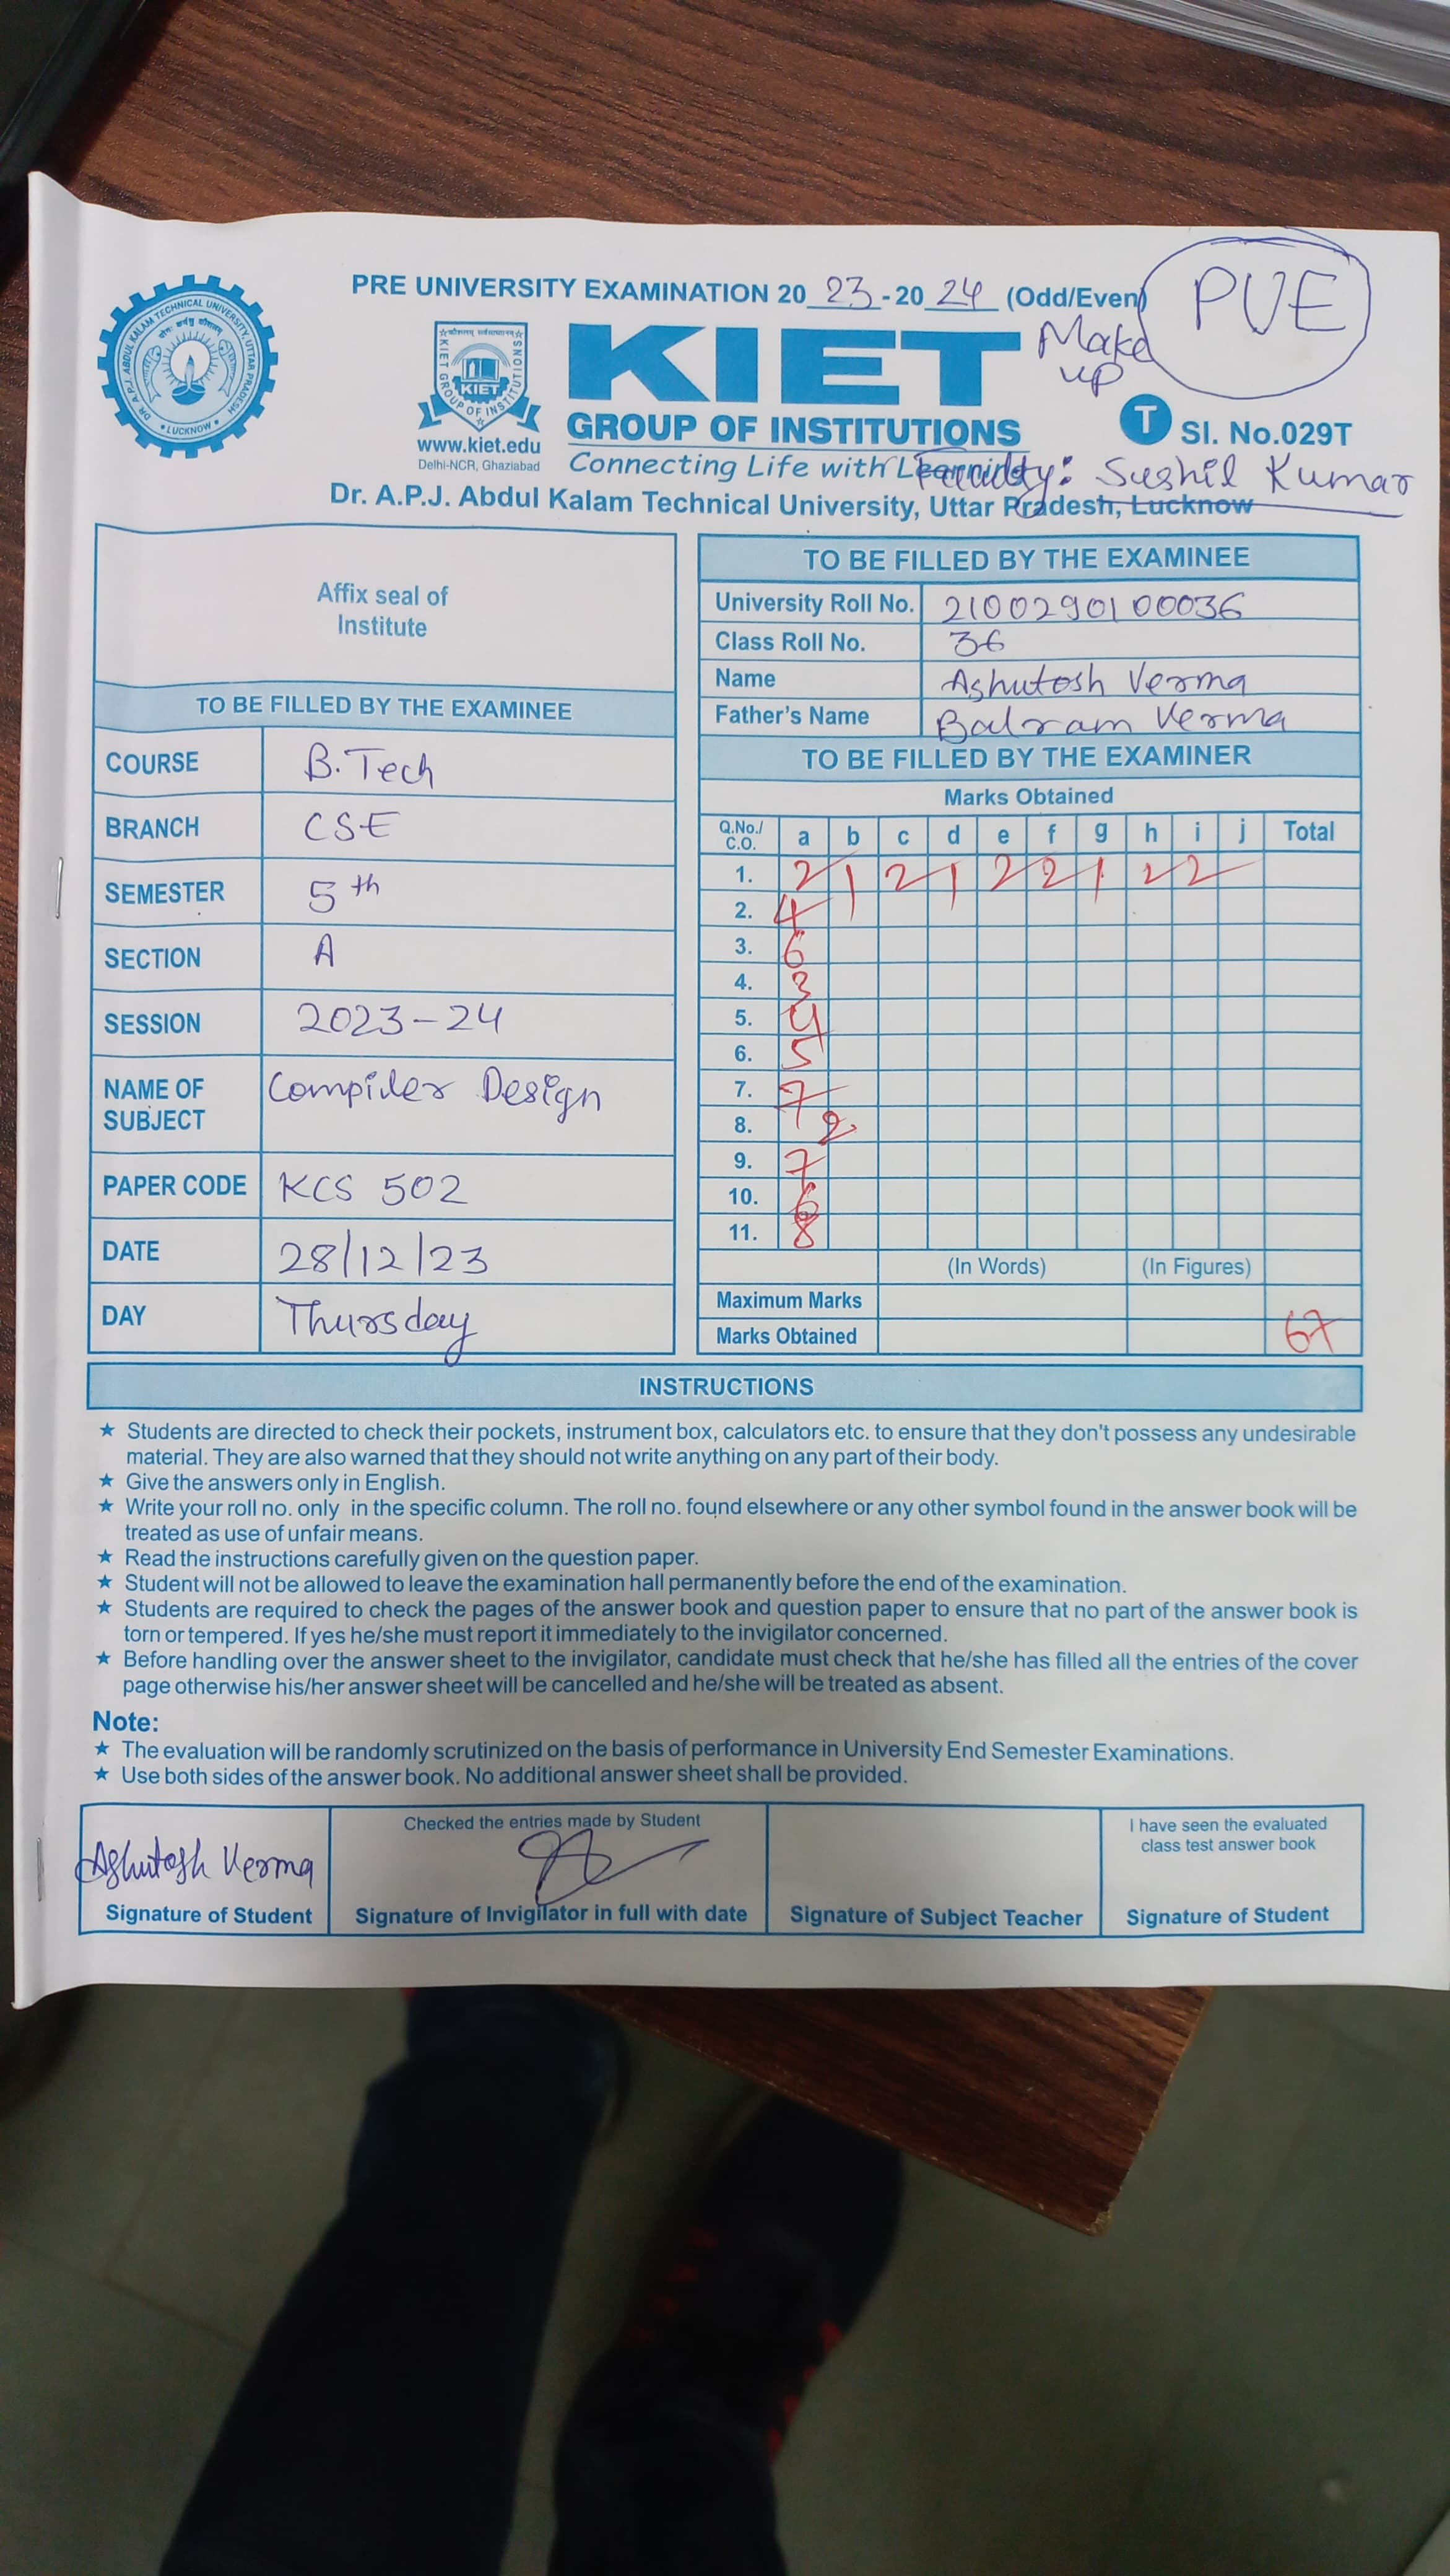 PRE UNIVERSITY EXAMINATION 20 23 - 20 24 (Odd/Even)
PUE
Make up
KIET
GROUP OF INSTITUTIONS
Connecting Life with Learning
DR. A.P.J. ABDUL KALAM TECHNICAL UNIVERSITY, UTTAR PRADESH
LUCKNOW
KIET GROUP OF INSTITUTIONS
KIET
www.kiet.edu
Delhi-NCR, Ghaziabad
T Sl. No.029T
Faculty: Sushil Kumar
Dr. A.P.J. Abdul Kalam Technical University, Uttar Pradesh, Lucknow
Affix seal of
Institute
TO BE FILLED BY THE EXAMINEE
COURSE B.Tech
BRANCH CSE
SEMESTER 5th
SECTION A
SESSION 2023-24
NAME OF SUBJECT Compiler Design
PAPER CODE KCS 502
DATE 28/12/23
DAY Thursday
TO BE FILLED BY THE EXAMINEE
University Roll No. 2100290100036
Class Roll No. 36
Name Ashutosh Verma
Father's Name Balram Verma
TO BE FILLED BY THE EXAMINER
Marks Obtained
Q.No./ C.O. a b c d e f g h i j Total
1. 2 1 2 1 2 2 1 2 2
2. 4
3. 6
4. 3
5. 4
6. 5
7. 7
8. 2
9. 7
10. 6
11. 8
(In Words) (In Figures)
Maximum Marks
Marks Obtained 67
INSTRUCTIONS
★ Students are directed to check their pockets, instrument box, calculators etc. to ensure that they don't possess any undesirable
material. They are also warned that they should not write anything on any part of their body.
★ Give the answers only in English.
★ Write your roll no. only in the specific column. The roll no. found elsewhere or any other symbol found in the answer book will be
treated as use of unfair means.
★ Read the instructions carefully given on the question paper.
★ Student will not be allowed to leave the examination hall permanently before the end of the examination.
★ Students are required to check the pages of the answer book and question paper to ensure that no part of the answer book is
torn or tempered. If yes he/she must report it immediately to the invigilator concerned.
★ Before handling over the answer sheet to the invigilator, candidate must check that he/she has filled all the entries of the cover
page otherwise his/her answer sheet will be cancelled and he/she will be treated as absent.
Note:
★ The evaluation will be randomly scrutinized on the basis of performance in University End Semester Examinations.
★ Use both sides of the answer book. No additional answer sheet shall be provided.
Ashutosh Verma
Signature of Student
Checked the entries made by Student
Signature of Invigilator in full with date
Signature of Subject Teacher
I have seen the evaluated
class test answer book
Signature of Student